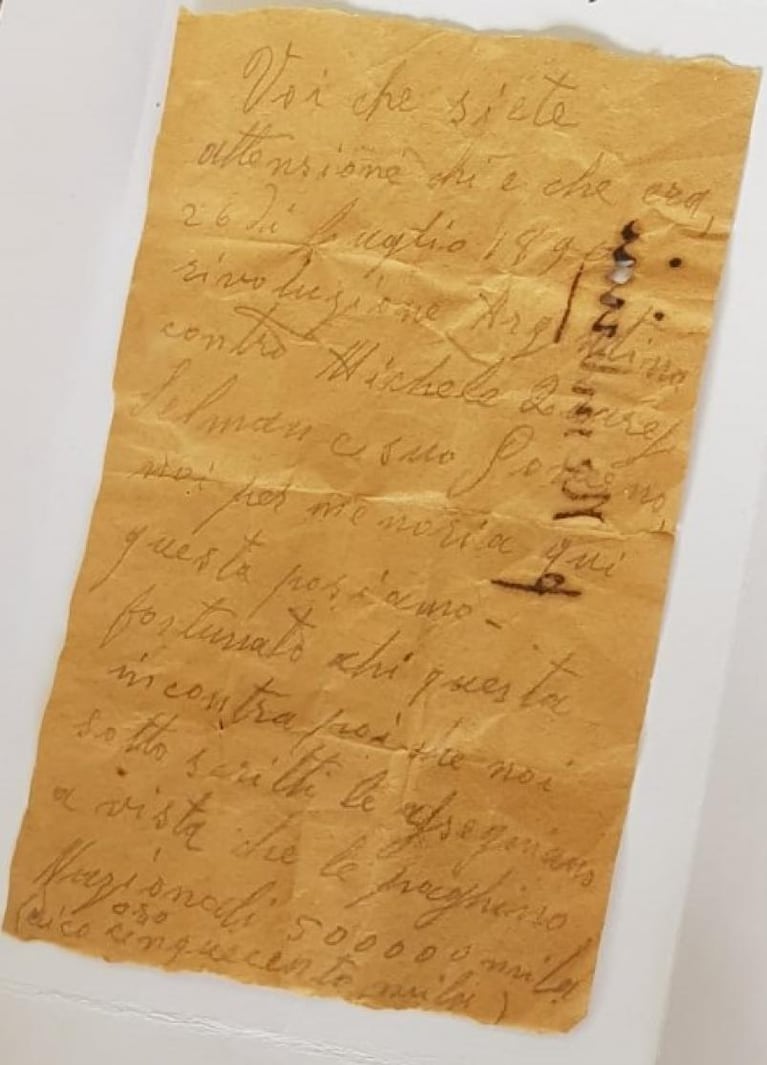 Voi che siete
attensione chi e che ora,
26 di Luglio 1890
rivoluzione Argentina
contro Michele
Selman e suo Governo,
noi per memoria qui
questa posiamo -
fortunato chi questa
incontra poi che noi
sotto scritti le assegniamo
a vista che le paghino
Nazionali 500000 mila
oro
(dico cinquecento mila)